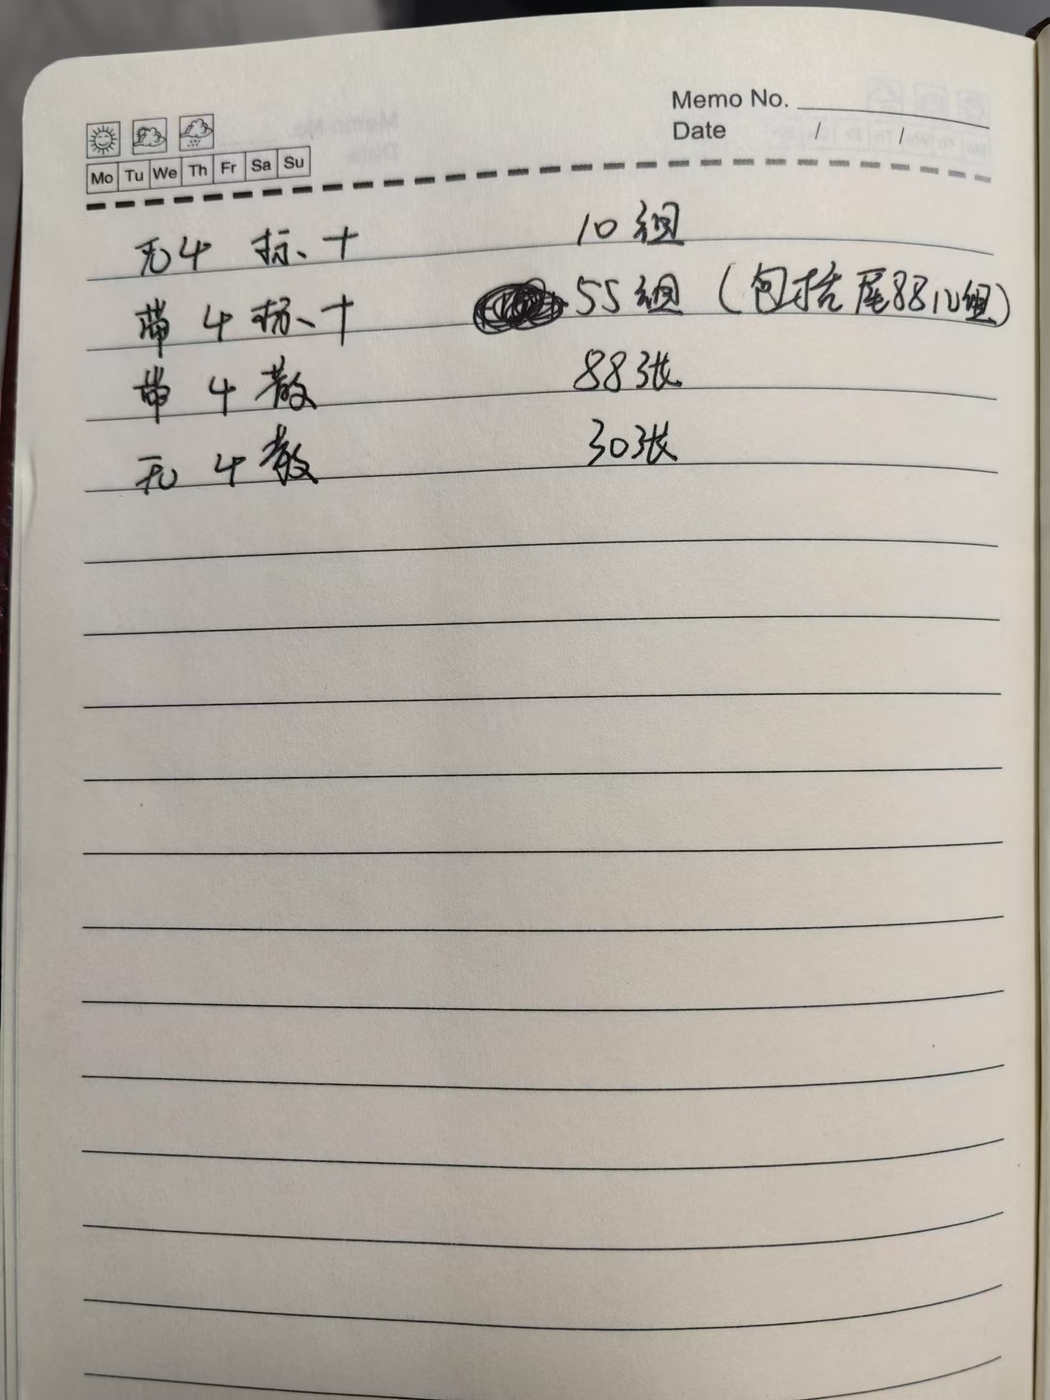 Memo No.
Date / /
Mo Tu We Th Fr Sa Su
无4 标、十 10组
带 4 标、十 55组（包括尾88 12组）
带 4 散 88张
无 4 散 30张